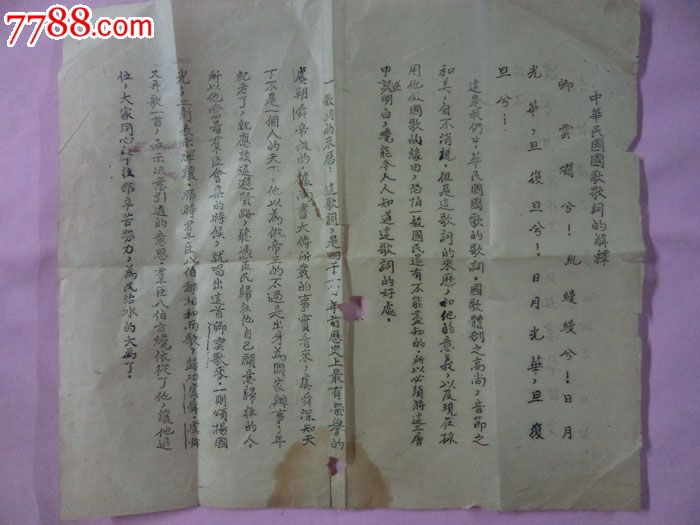 7788.com
中華民國國歌歌詞的解釋
卿雲爛兮！糺縵縵兮！日月
光華，旦復旦兮！日月光華，旦復
旦兮！
這是我們中華民國國歌的歌詞。國歌體制之高尚，音節之
和美，自不消說。但是這歌詞的來歷，和他的意義，以及現在採
用他做國歌的緣由，恐怕一般國民還有不能盡知的。所以必須將這三層
申說明白，纔能令人人知道這歌詞的好處。
一 歌詞的來歷：這歌詞，是四千 年前歷史上最有榮譽的
虞朝舜帝做的，據尚書大傳所載的事實看來，虞舜深知天
下不是一個人的天下，他以為做帝王的不過是出身為國家辦事；年
紀老了，就應該退避賢路，聽憑臣民歸往他自己願意歸往的人
所以他當着羣臣會集的時候，就唱出這首卿雲歌來。一則頌揚國
光，一則表示禪讓。那時羣臣八伯都相和而歌，歸功虞舜，虞舜
又再歌一首，表示決意引退的意思，羣臣八伯方纔依從了他，讓他退
位，大家同心歸往那辛苦勞力，為民治水的大禹了。